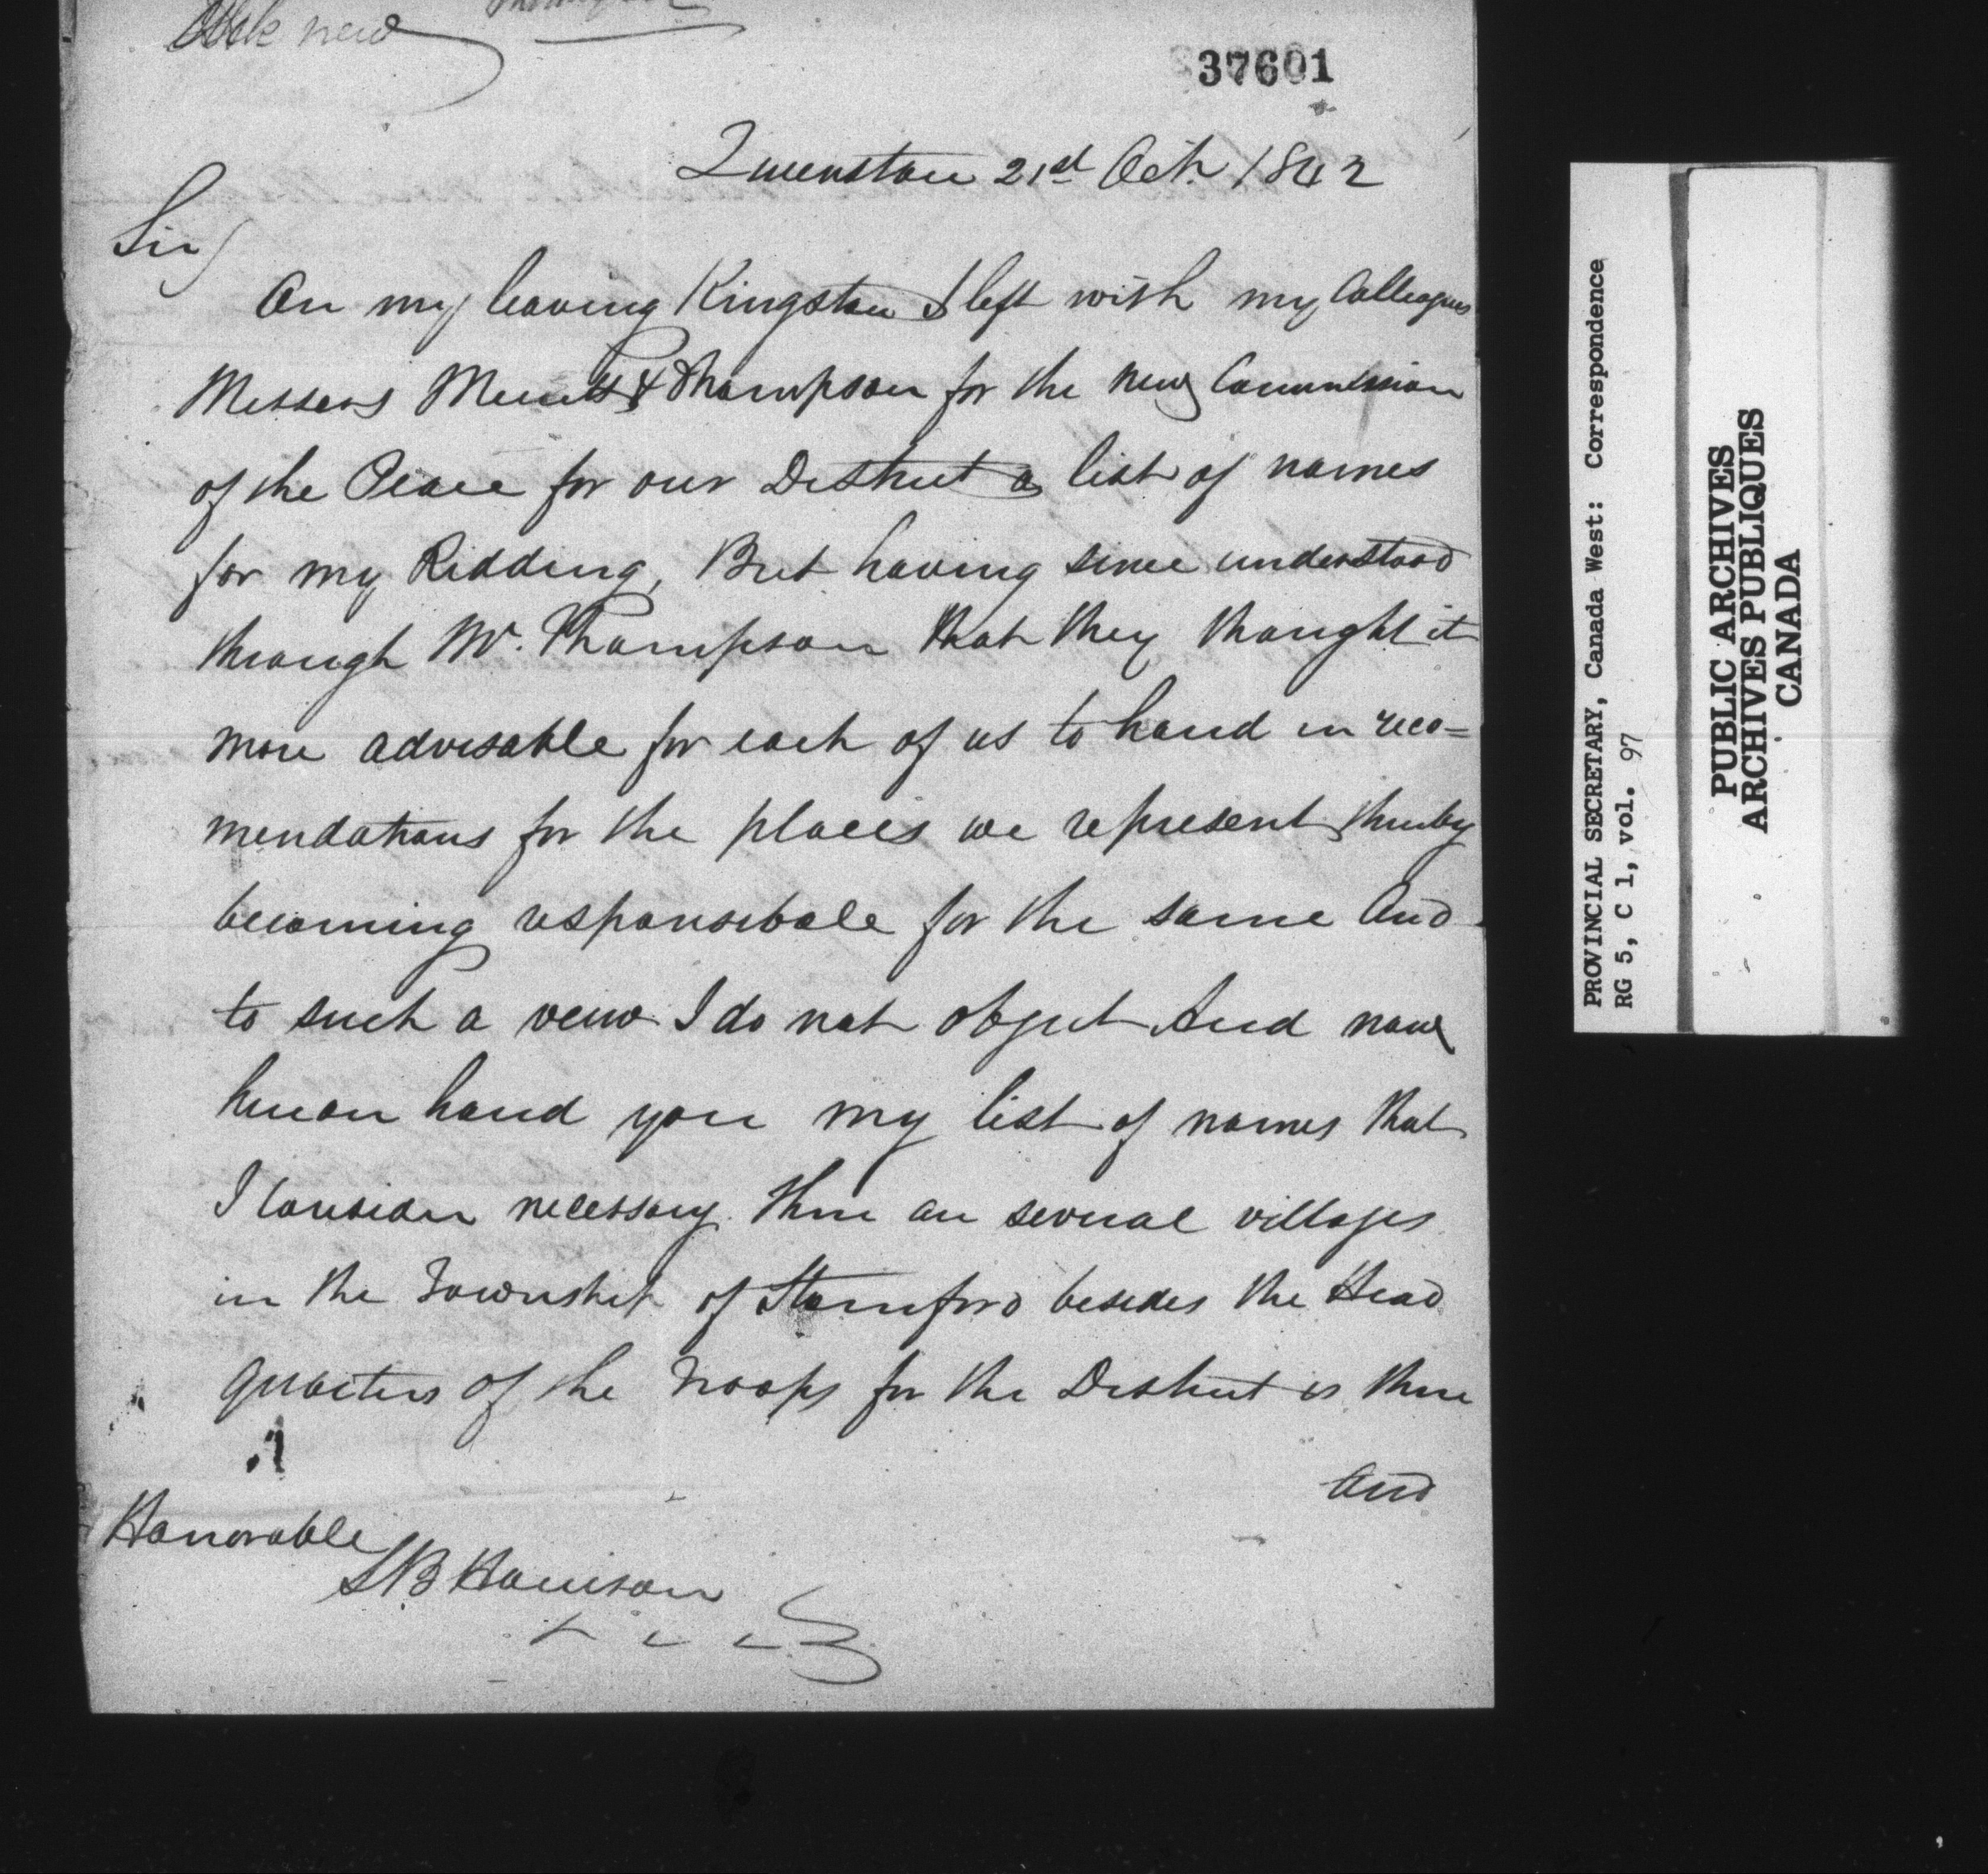 37601
Queenston 21st Oct. 1842
Sir
On my leaving Kingston I left with my Colleagues
Messers Merritt & Thompson for the new Commission
of the Peace for our District a list of names
for my Ridding, But having since understood
through Mr. Thompson that they thought it
more advisable for each of us to hand in reco=
mendations for the places we represent thereby
becoming responsibale for the same And
to such a veiw I do not object And now
hereon hand you my list of names that
I consider necessary. There are several villages
in the Township of Stamford besides the Head
quarters of the Troops for the District is there
And
Honorable
S B Harrison
PROVINCIAL SECRETARY, Canada West: Correspondence
RG 5, C 1, vol. 97
PUBLIC ARCHIVES
ARCHIVES PUBLIQUES
CANADA